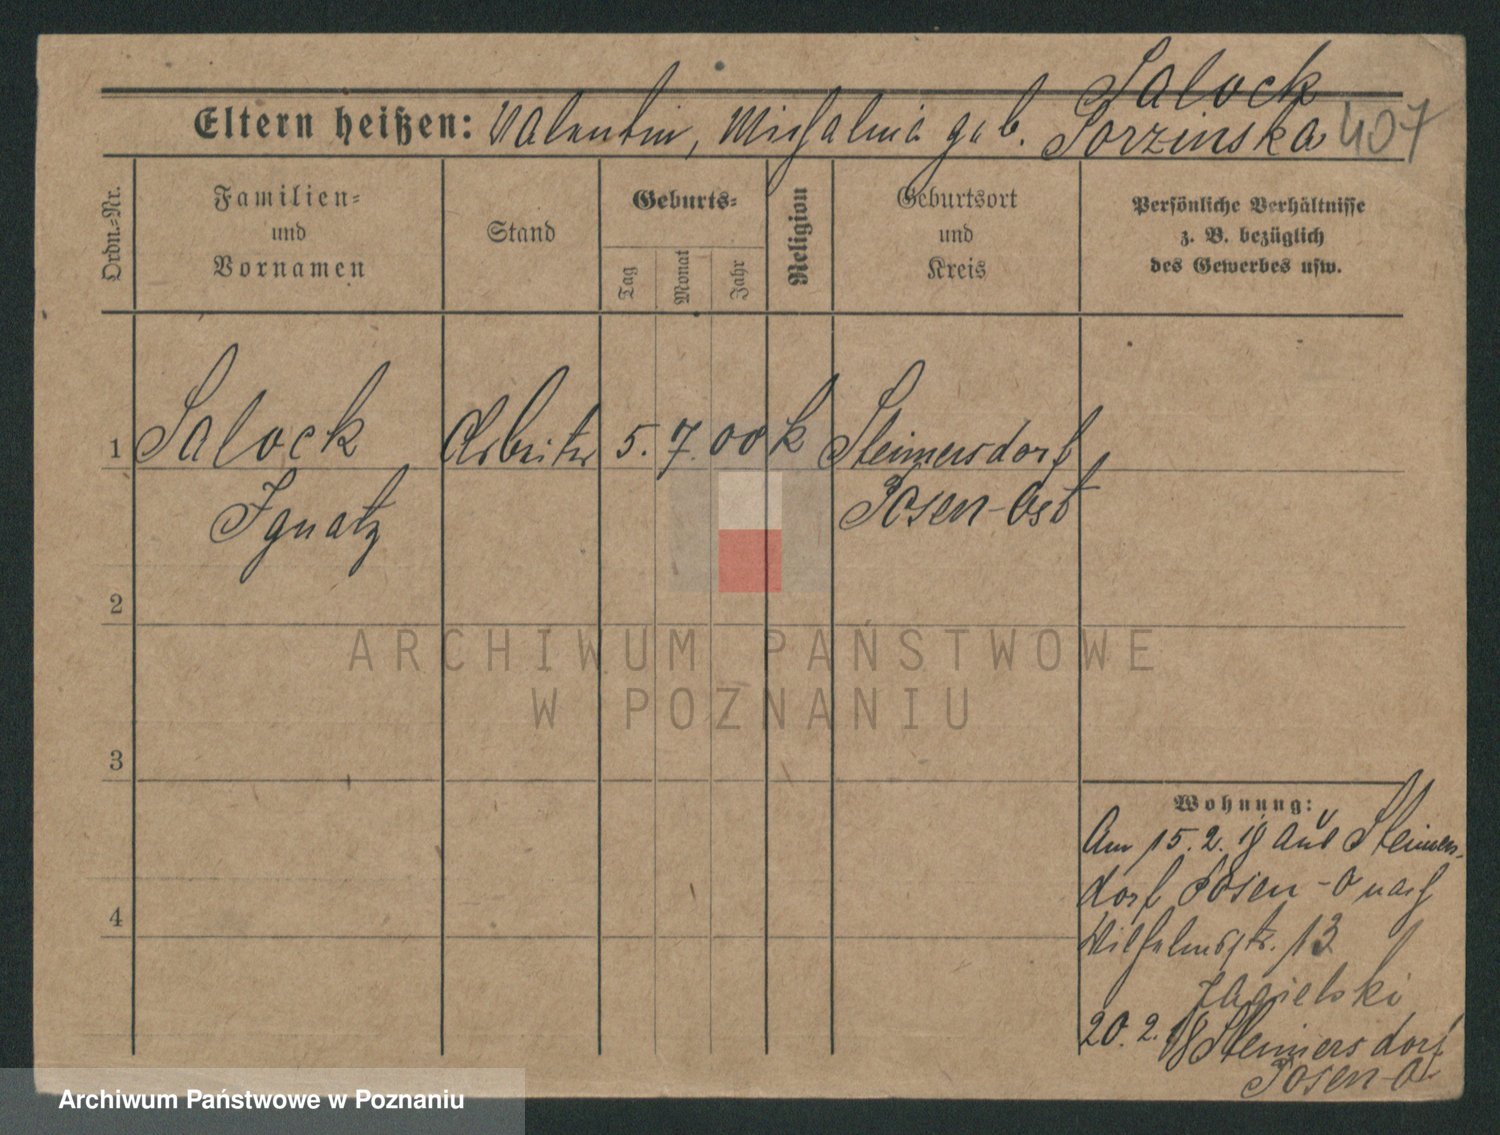 Salock
Eltern heißen: Valentin, Michalina geb. Sorzinska 407
Ordn.-Nr.
Familien-
und
Vornamen
Stand
Geburts-
Tag
Monat
Jahr
Religion
Geburtsort
und
Kreis
Persönliche Verhältnisse
z. B. bezüglich
des Gewerbes usw.
1 Salock Arbeiter 5. 7. 00 k Steimersdorf
Ignatz Posen-Ost
2
3
4
Wohnung:
Am 15.2.18 aus Steimers-
dorf Posen-O nach
Wilhelmstr. 13
Jagielski
20.2.18 Steimersdorf
Posen-O.
ARCHIWUM PAŃSTWOWE
W POZNANIU
Archiwum Państwowe w Poznaniu